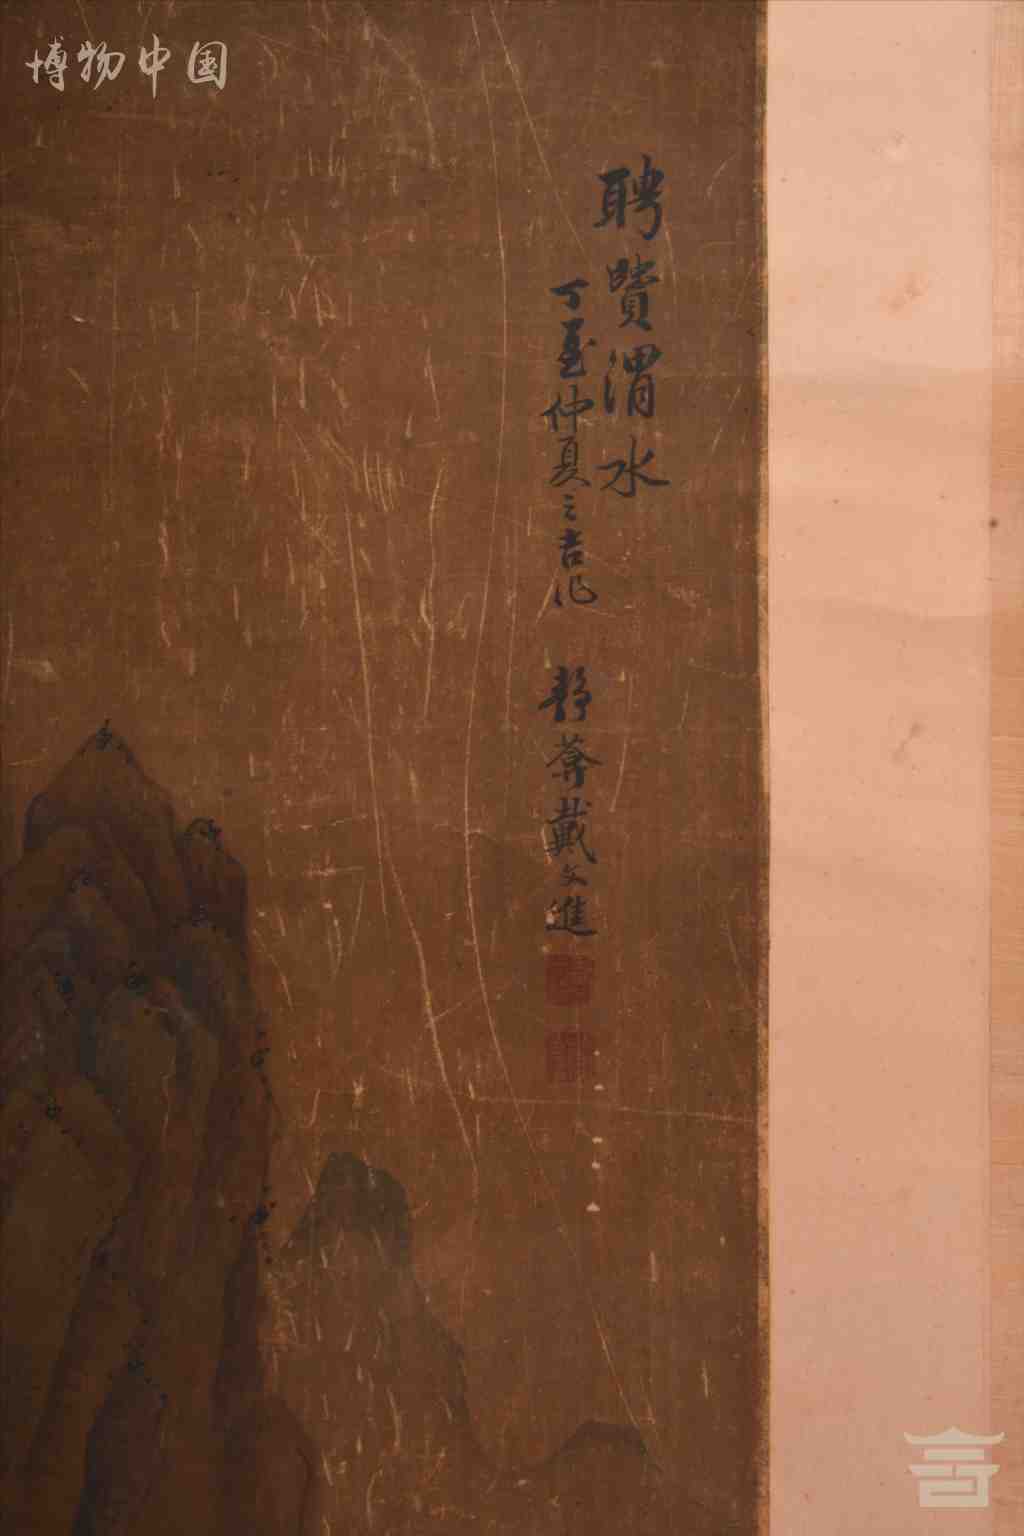 博物中国
聘賢渭水
丁 仲夏之吉作 靜菴戴文進